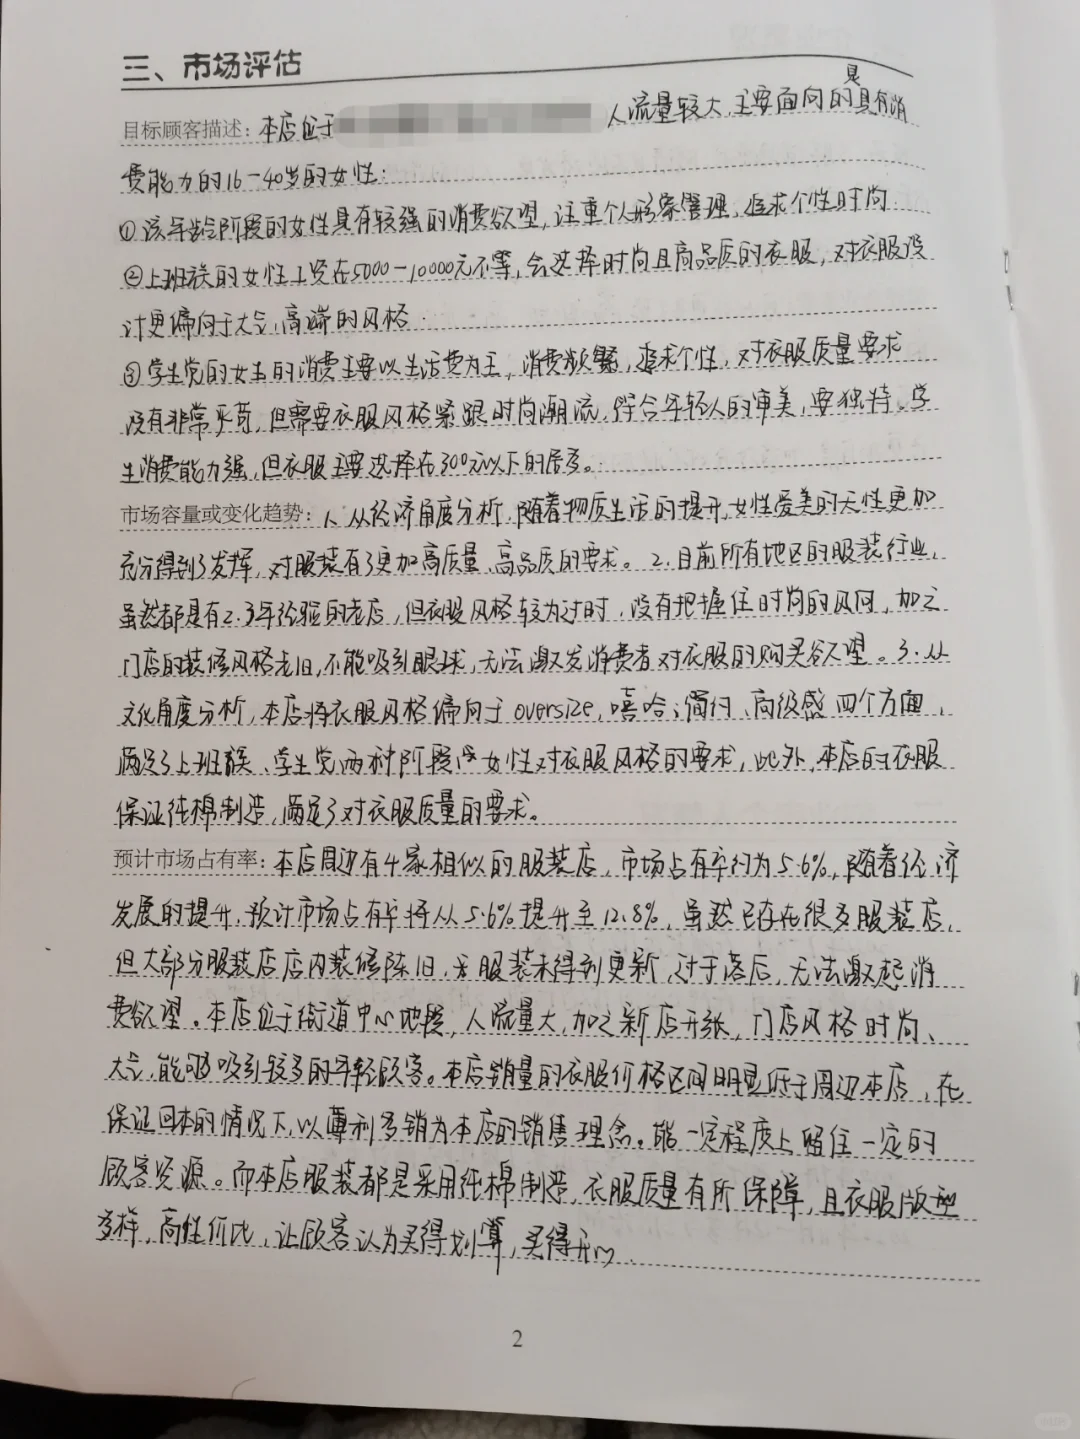 三、市场评估
目标顾客描述：本店位于 人流量较大，主要面向的是具有消
费能力的16-40岁的女性：
①该年龄阶段的女性具有较强的消费欲望，注重个人形象管理，追求个性时尚
②上班族的女性工资在5000-10000元不等，会选择时尚且高品质的衣服，对衣服设
计更偏向于大气，高端的风格．
③学生党的女生的消费主要以生活费为主，消费频繁，追求个性，对衣服质量要求
没有非常严苛，但需要衣服风格紧跟时尚潮流，符合年轻人的审美，要独特。学
生消费能力强，但衣服主要选择在300元以下的居多。
市场容量或变化趋势：1、从经济角度分析，随着物质生活的提升，女性爱美的天性更加
充分得到了发挥，对服装有了更加高质量、高品质的要求。2．目前所有地区的服装行业，
虽然都是有2．3年经验的老店，但衣服风格较为过时，没有把握住时尚的风向，加之
门店的装修风格老旧，不能吸引眼球，无法激发消费者对衣服的购买欲望。3．从
文化角度分析，本店将衣服风格偏向于oversize，嘻哈，简约、高级感四个方面，
满足了上班族、学生党两种阶段女性对衣服风格的要求，此外，本店的衣服
保证纯棉制造，满足了对衣服质量的要求。
预计市场占有率：本店周边有4家相似的服装店，市场占有率约为5.6%，随着经济
发展的提升，预计市场占有率将从5.6%提升至12.8%，虽然已存在很多服装店，
但大部分服装店店内装修陈旧，服装未得到更新，过于落后，无法激起消
费欲望。本店位于街道中心地段，人流量大，加之新店开张，门店风格时尚、
大气，能够吸引较多的年轻顾客。本店销量的衣服价格区间明显低于周边本店，在
保证回本的情况下，以薄利多销为本店的销售理念。能一定程度上留住一定的
顾客资源。而本店服装都是采用纯棉制造，衣服质量有所保障，且衣服版型
多样，高性价比，让顾客认为买得划算，买得开心．
2